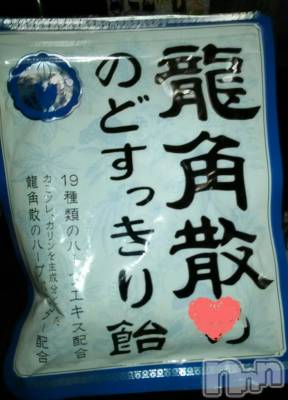 龍角散の
のどすっきり飴
19種類のハーブエキス配合
カミツレ、カリンを主成分とした
龍角散のハーブパウダー配合